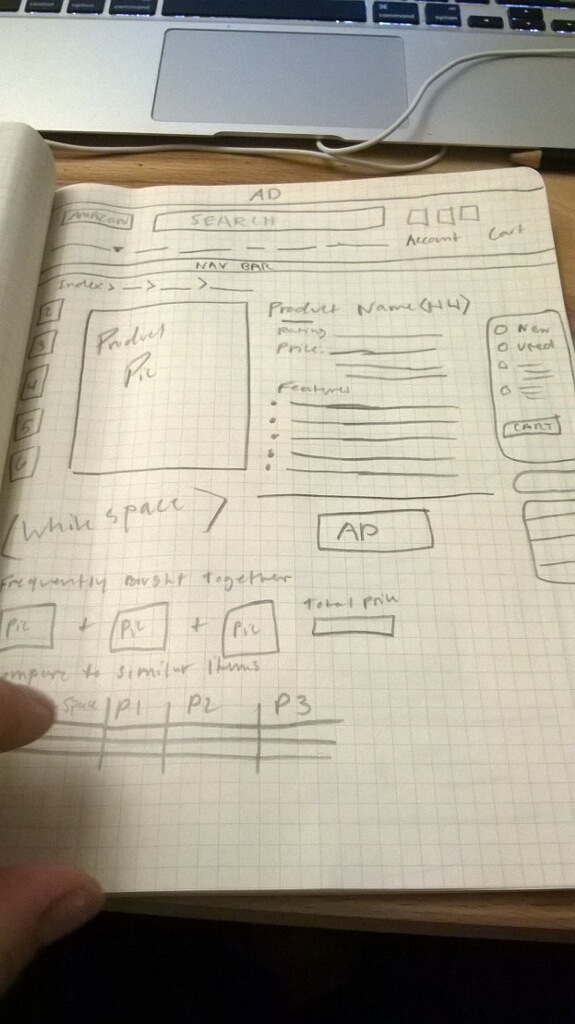 AD
AMAZON SEARCH
Account Cart
NAV BAR
Index > > >
2
3
4
5
6
Product
Pic
Product Name (H4)
Rating
Price:
Features
New
Used
CART
(White space)
AD
Frequently Bought together
Pic + Pic + Pic
Total price
ompare to similar items
Space P1 P2 P3